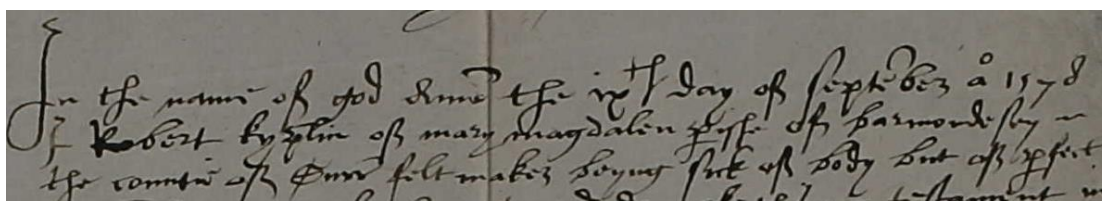 In the name of god Amē the ixth day of septēber ao 1578
I Robert kyplin of mary magdalen pishe of barmondesey in
the countie of Surr feltmaker beyng sick of body but of pfect
testament